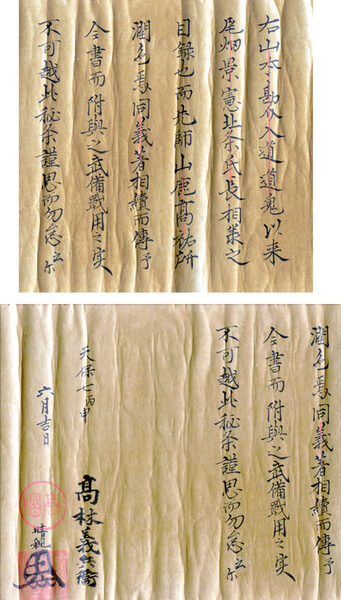 右山本勘介入道道鬼以来
尾畑景憲北条氏長相承之
目録也而先師山鹿髙祐所
潤色焉同義著相續而傳予
今書而附與之武備戰用之実
不可越此秘条謹思而勿怠云尓
潤色焉同義著相續而傳予
今書而附與之武備戰用之実
不可越此秘条謹思而勿怠云尓
天保七丙申
六月吉日
髙林義兵衛